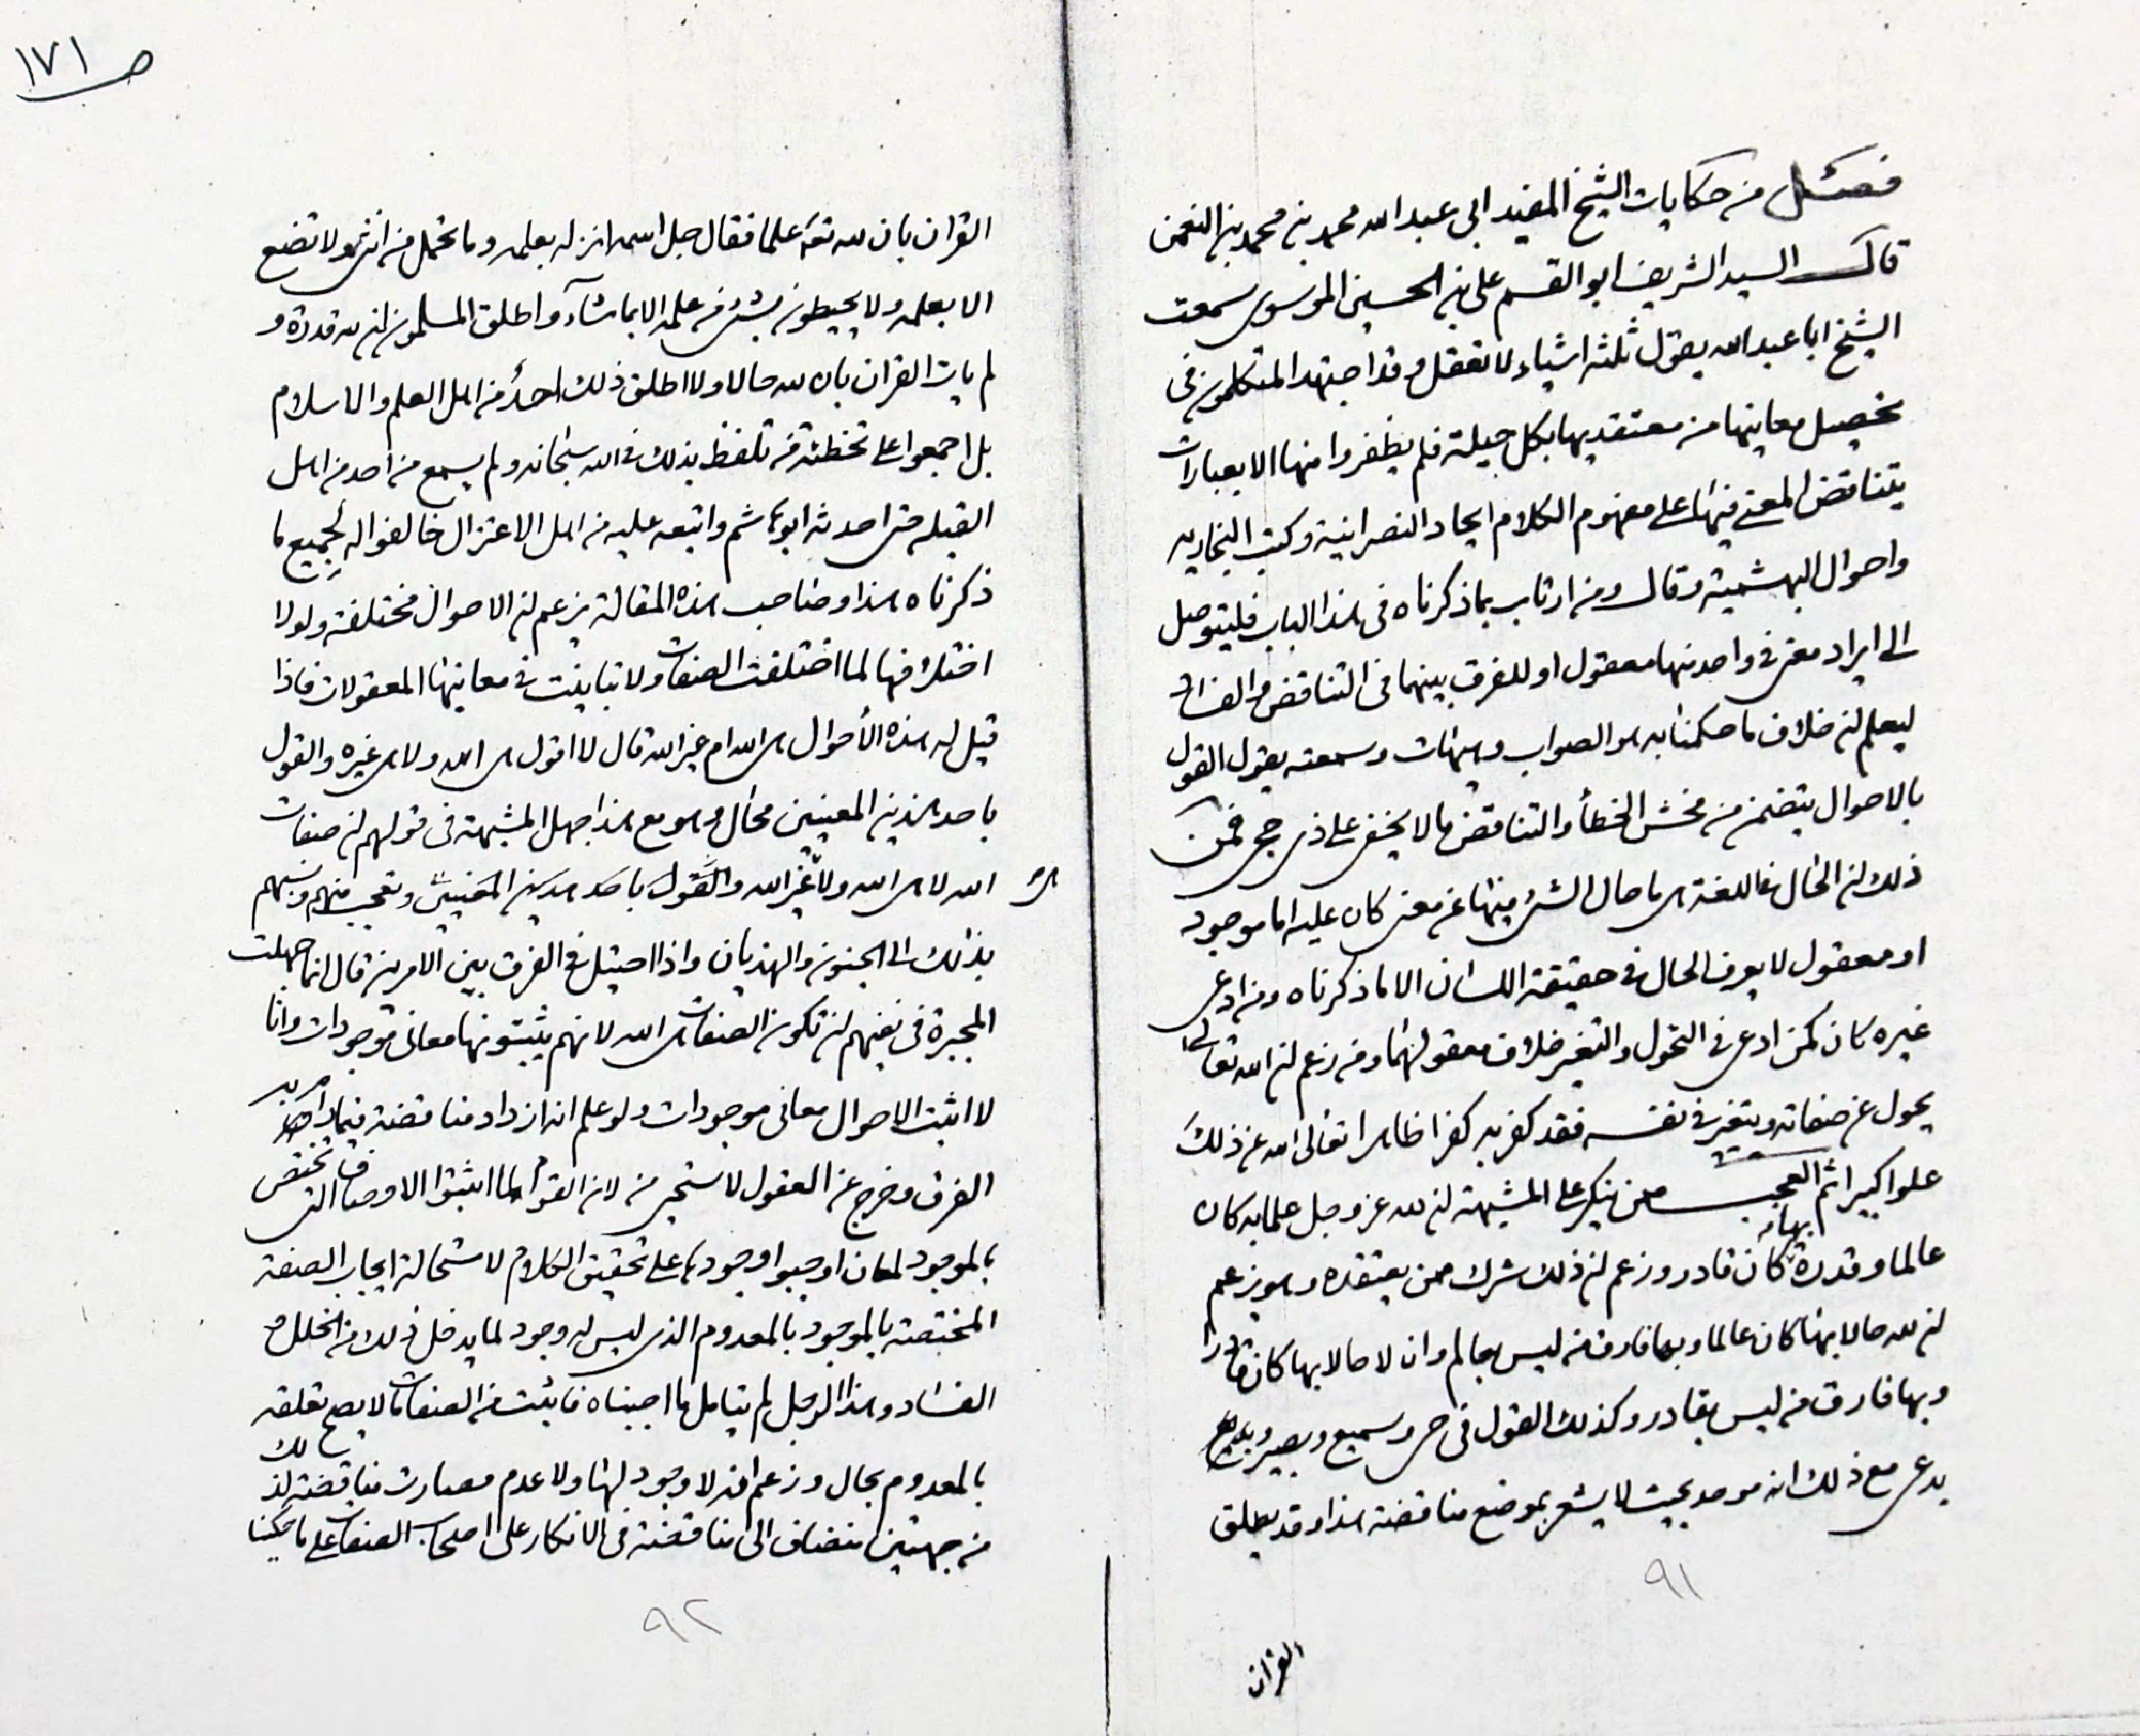 فصل من حكايات الشيخ المفيد ابى عبد الله محمد بن محمد بن النعمن
قال السيد الشريف ابو القسم على بن الحسين الموسوى سمعت
الشيخ ابا عبد الله يقول ثلثه اشياء لا تعقل وقد اجتهد المتكلمون فى
تحصيل معانيها من معتقديها بكل حيلة فلم يظفروا منها الا بعبارات
يتناقض المعنى فيها على مفهوم الكلام ايحاد النصرانية وكتب النجاريه
واحوال البهشمية وقال ومن ارتاب بما ذكرناه فى هذا الباب فليتوصل
الى ايراد معنى فى واحد منها معقول او للفرق بينهما فى التناقض والفساد
ليعلم ان خلاف ما حكمنا به هو الصواب وهيهات وسمعته يقول القول
بالاحوال يتضمن من فحش الخطأ والتناقض ما لا يخفى على ذى حجى فمن
ذلك ان الحال فى اللغة هى ما حال الشئ فيها عن معنى كان عليه اما موجود
او معقول لا يعرف الحال فى حقيقة اللسان الا ما ذكرناه ومن ادعى
غيره كان كمن ادعى فى التحول والتغير خلاف معقولهما ومن زعم ان الله تعالى
يحول عن صفاته ويتغير فى نفسه فقد كفر به كفرا ظاهرا تعالى الله عن ذلك
علوا كبيرا ثم العجب ممن ينكر على المشبهة ان لله عز وجل علما به كان
عالما وقدرة بها كان قادر وزعم ان ذلك شرك ممن يعتقده وهو يزعم
ان لله حالا بها كان عالما وبها فارق من ليس بعالم وان لا حالا بها كان قادرا
وبها فارق من ليس بقادر وكذلك القول فى حى وسميع وبصير و
يدعى مع ذلك انه موحد بحيث لا يشعر بموضع مناقضة هذا وقد يطلق
٩١
القران
ص ١٧١
القران بان لله تعه علما فقال جل اسمه انزله بعلمه وما تحمل من انثى ولا تضع
الا بعلمه ولا يحيطون بشئ من علمه الا بما شآء واطلق المسلمون ان لله قدرة و
لم يات القران بان لله حالا ولا اطلق ذلك احد من اهل العلم والاسلام
بل اجمعوا على تخطئة من تلفظ بذلك فى الله سبحانه ولم يسمع من احد من اهل
القبله حتى احدثه ابو هاشم واتبعه عليه من اهل الاعتزال خالفوا له لجميع ما
ذكرناه هذا وصاحب هذه المقالة يزعم ان الاحوال مختلفة ولولا
اختلافها لما اختلفت الصفات ولا تباينت فى معانيها المعقولات فاذا
قيل له هذه الأحوال هى الله ام غير الله قال لا اقول هى الله ولا هى غيره والقول
باحد هذين المعنيين محال وهو مع هذا جهل المشبهة فى قولهم ان صفات
الله لا هى الله ولا هى غير الله والقول باحد هذين المعنيين وتعجب منهم ونسبهم
بذلك الى الجنون والهذيان واذا احتيل فى الفرق بين الامرين قال انما جهلت
المجبرة فى نفيهم ان تكون الصفات هى الله لانهم يثبتونها معانى موجودات وانا
لا اثبت الاحوال معانى موجودات ولو علم انه ازداد مناقضة فيما رام به
الفرق وخرج عن العقول لاستحيى من لان القوم لما اثبتوا الاوصاف التى تختص
بالموجود لمعان اوجبوا وجودها على تحقيق الكلام لاستحالة ايجاب الصفة
المختصة بالموجود بالمعدوم الذى ليس له وجود لما يدخل ذلك من الخلل و
الفساد وهذا الرجل لم يتامل ما اجبناه فائبت من الصفات ما لا يصح تعلقه
بالمعدوم بحال وزعم انه لا وجود لها ولا عدم فصارت مناقضة لذلك
من جهتين تنضاف الى مناقضته فى الانكار على اصحاب الصفات على ما حكينا
٩٢